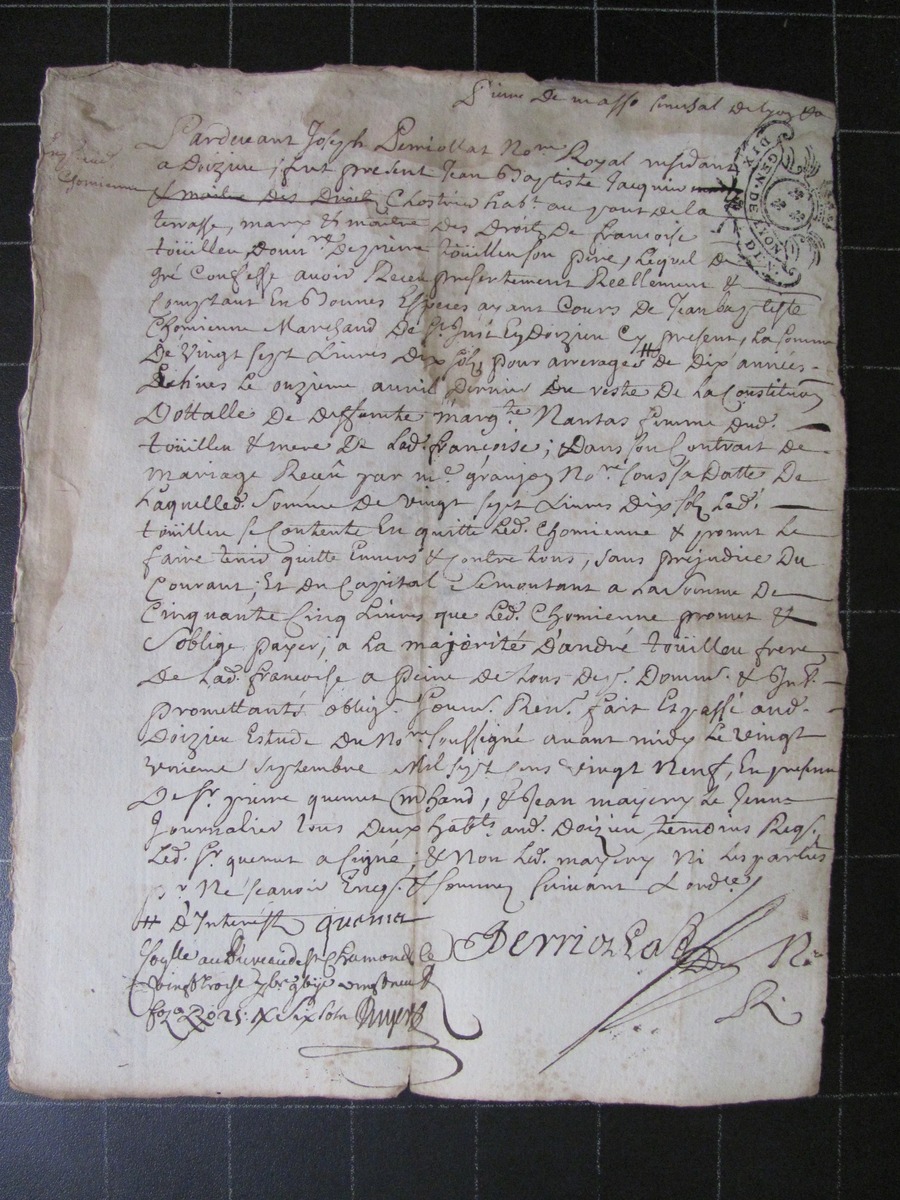 Pardevant Joseph Perriollat No.re Royal residant
a Doizieu, fut present Jean Baptiste Jacquin
& maitre des Droits Chostrie hab.t au pont de la
terrasse, mary & maitre des Droits De francoise
toüilleu, De pierre toüilleu son pere, Lequel De
gré Confesse avoir Receu presentement Reellement &
Comptant En Bonnes Especes ayant Cours de Jean baptiste
Chomienne Marchand De St. Just En Doizieu Cy present, La somme
De vingt sept Livres Dix sols pour arrerages # de Dix années
Echües Le onzieme avril Dernier Du reste De La Constitution
Dottalle De Deffunte marg.te Nantas femme Dud.
toüilleu & mere De Lad. francoise; & Dans son Contrait De
mariage Receu par m.e granjon No.re sous sa Datte De
Laquelle d. Somme De vingt sept Livres Dix sols Led.
toüilleu se Contente En quitte Led. Chomienne & promet Le
faire tenir quitte Envers & Contre tous, sans prejudice Du
Courant; Et Du Capital Se montant a La Somme De
Cinquante Cinq Livres que Led. Chomienne promet &
s'oblige payer, a La majorité D'andré toüilleu frere
De Lad. francoise a peine De tous Des. Domm. & Int.
promettants oblig. Soum. Ren. fait Et passé aud.
Doizieu Estude Du No.re soussigné avant midy Le vingt
unieme septembre Mil sept cens vingt Neuf, En presence
De Sr. pierre quemet mhand, & Jean mayery Le Jeune
Journalier tous Deux hab.ts aud. Doizieu temoins Req.s
Led. Sr quemet a signé & Non Led. mayery Ni Les parties
Ne scavoir Enq.s & sommes suivant L ord.re
# D'Interest quemet
Perriollat No.re
R.
au Bureau de St Chamond le
vingt trois 7bre
dix sols
GEN. DE LYON
DIX
Chomienne